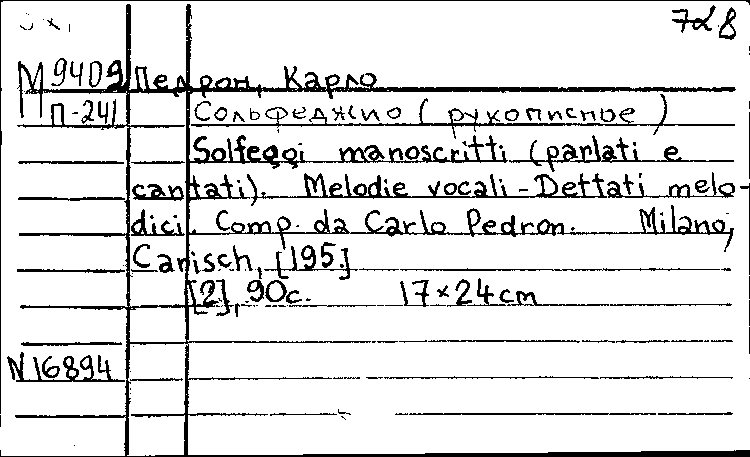 728
М 9409 Педрон, Карло
П-241 Сольфеджио (рукописное)
Solfeggi manoscritti (parlati e
cantati). Melodie vocali - Dettati melo-
dici. Comp. da Carlo Pedron. Milano,
Carisch, [195.]
[2], 90c. 17×24cm
N16894